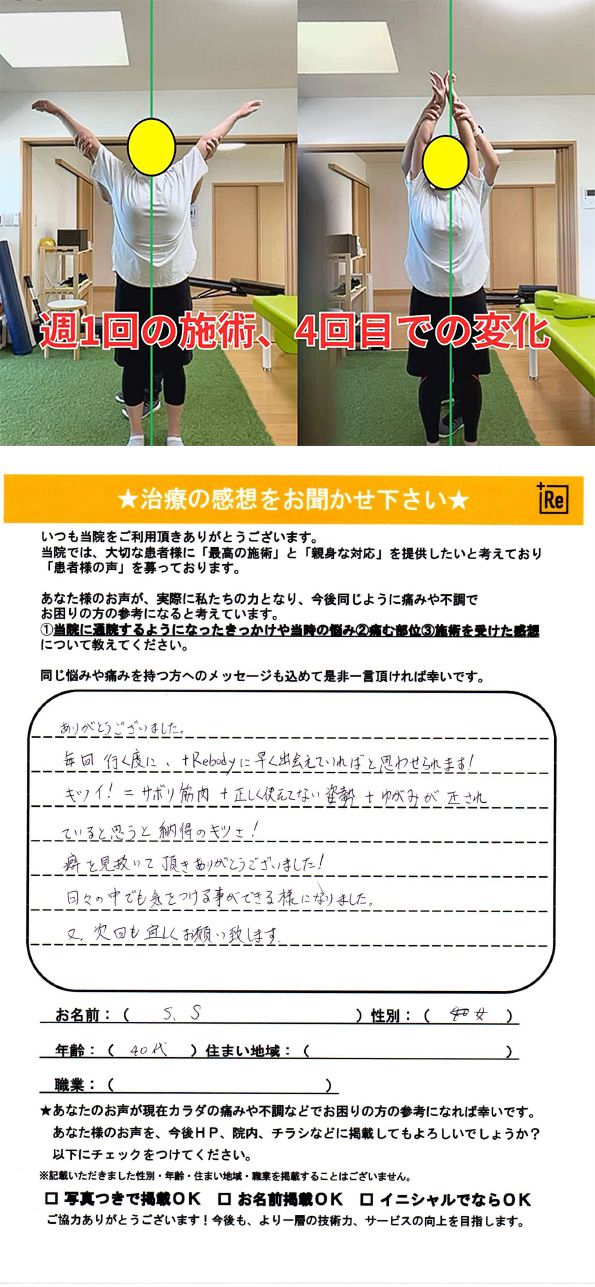 週1回の施術、4回目での変化
★治療の感想をお聞かせ下さい★
+Re
いつも当院をご利用頂きありがとうございます。
当院では、大切な患者様に「最高の施術」と「親身な対応」を提供したいと考えており
「患者様の声」を募っております。
あなた様のお声が、実際に私たちの力となり、今後同じように痛みや不調で
お困りの方の参考になると考えています。
①当院に通院するようになったきっかけや当時の悩み②痛む部位③施術を受けた感想
について教えてください。
同じ悩みや痛みを持つ方へのメッセージも込めて是非一言頂ければ幸いです。
ありがとうございました。
毎回 行く度に、+Rebodyに早く出会えていればと思わせられます!
キツイ! = サボリ筋肉 + 正しく使えてない姿勢 + ゆがみが 正され
ていると思うと 納得のキツさ!
癖を見抜いて 頂きありがとうございました!
日々の中でも気をつける事ができる様になりました。
又、次回も宜しくお願い致します。
お名前:( S.S )性別:( 女 )
年齢:( 40代 )住まい地域:( )
職業:( )
★あなたのお声が現在カラダの痛みや不調などでお困りの方の参考になれば幸いです。
あなた様のお声を、今後HP、院内、チラシなどに掲載してもよろしいでしょうか?
以下にチェックをつけてください。
※記載いただきました性別・年齢・住まい地域・職業を掲載することはございません。
□ 写真つきで掲載OK □ お名前掲載OK □ イニシャルでならOK
ご協力ありがとうございます!今後も、より一層の技術力、サービスの向上を目指します。